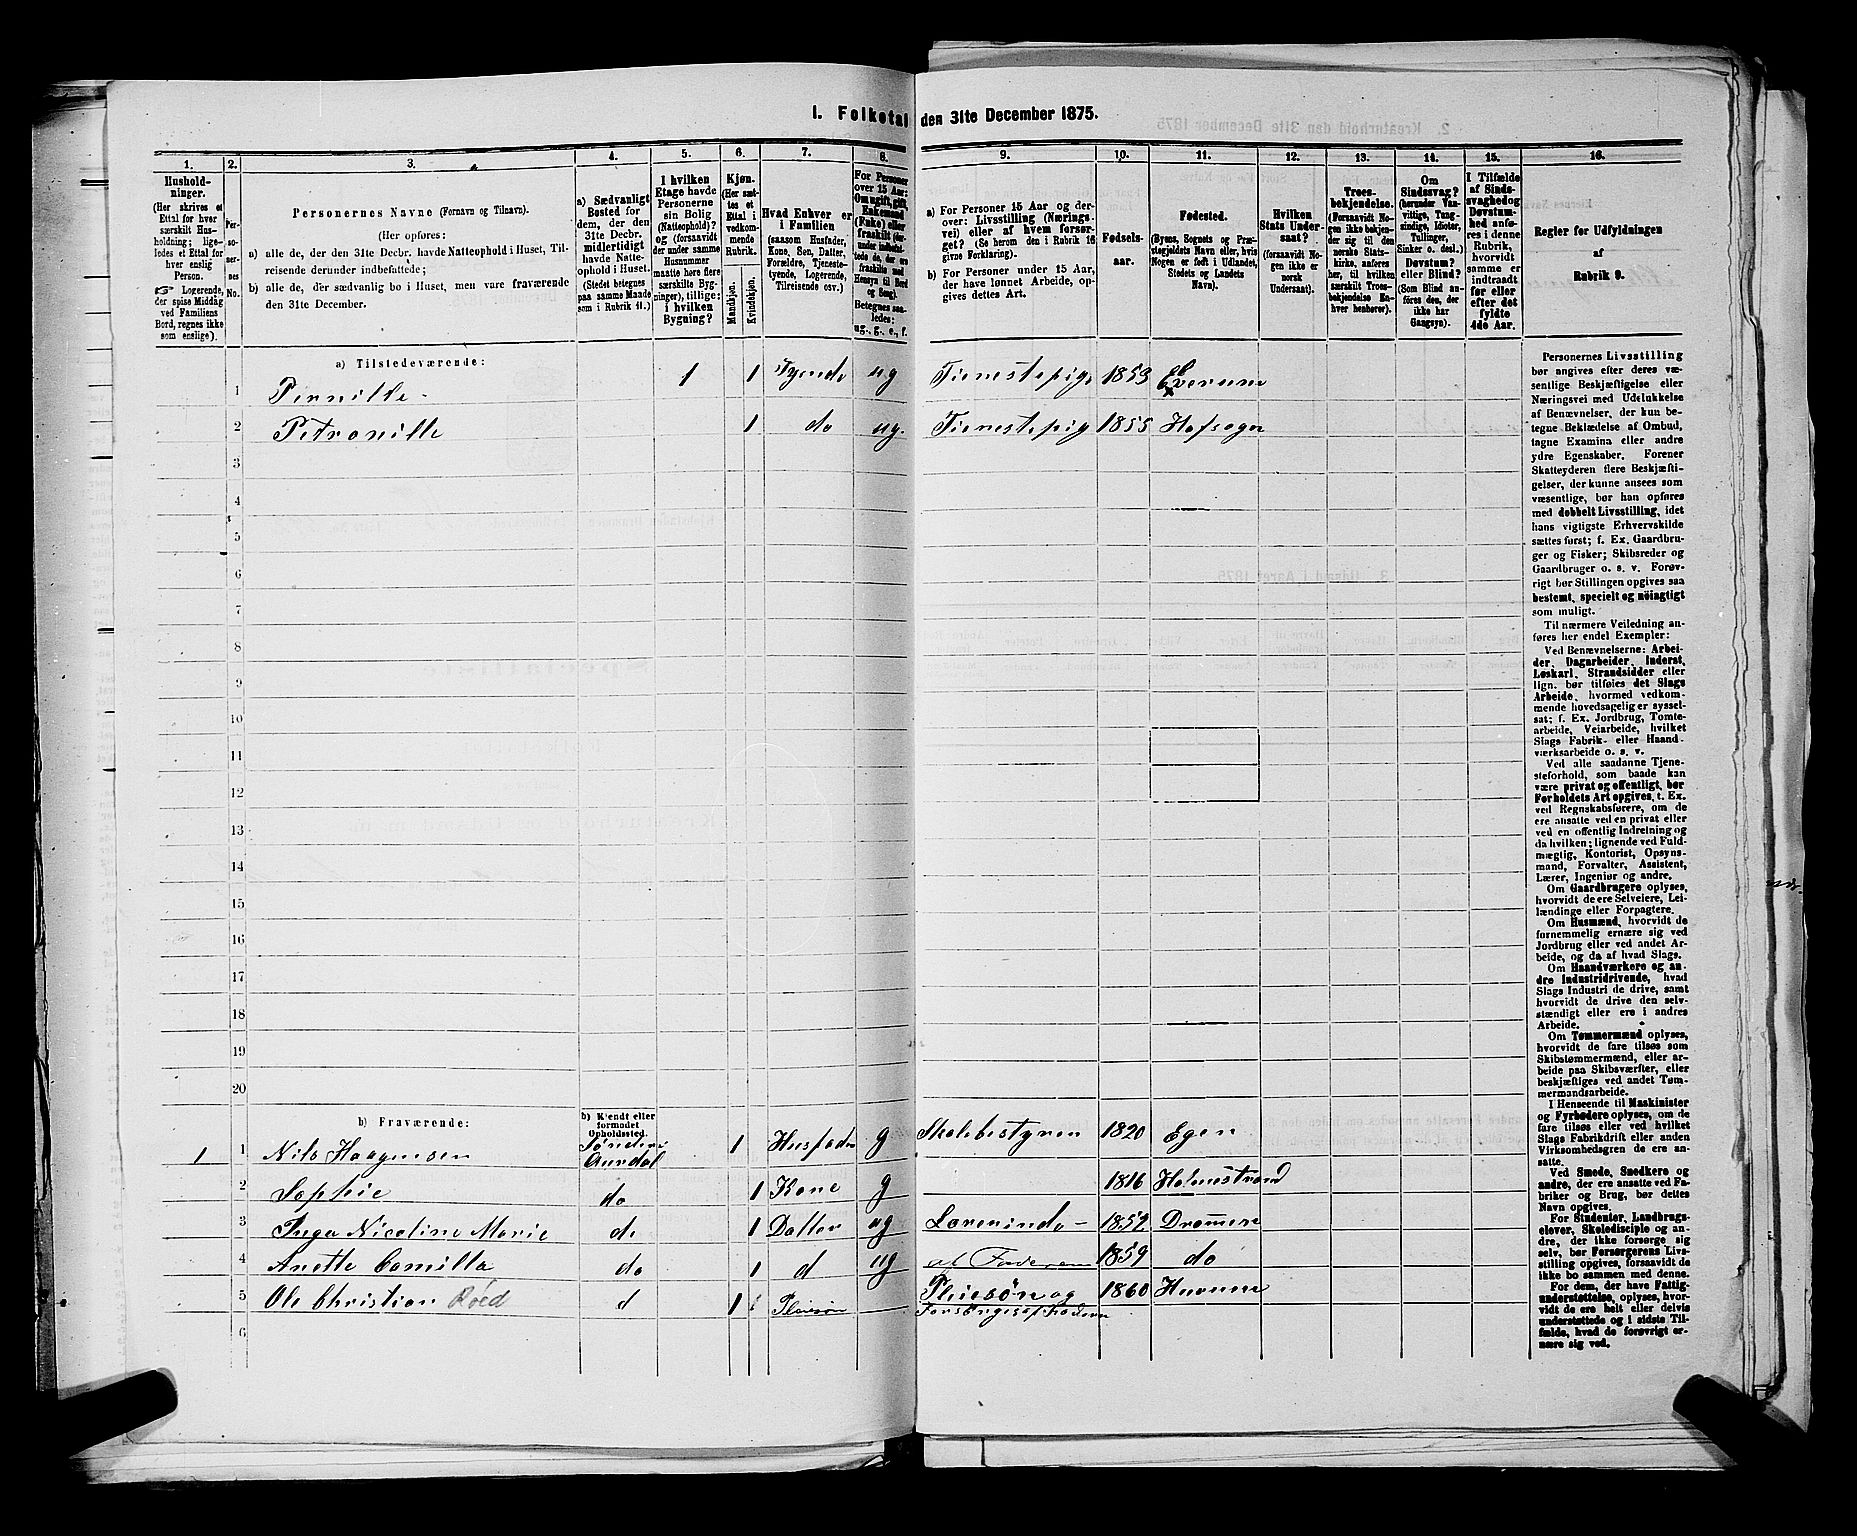 1. Folketal den 31te December 1875.
1. 2. 3. 4. 5. 6. 7. 8. 9. 10. 11. 12. 13. 14. 15. 16.
Hushold-
ninger.
(Her skrives et
Ettal for hver
særskilt Hus-
holdning; lige-
ledes et Ettal for
hver enslig
Person.
☞ Logerende,
der spise Middag
ved Familiens
Bord, regnes ikke
som enslige).
Per-
so-
ner-
nes
No.
Personernes Navne (Fornavn og Tilnavn).
(Her opføres:
a) alle de, der den 31te Decbr. havde Natteophold i Huset, Til-
reisende derunder indbefattede;
b) alle de, der sædvanlig bo i Huset, men vare fraværende
den 31te December.
a) Sædvanligt
Bosted for
dem, der den
31te Decbr.
midlertidigt
havde Natte-
ophold i Huset.
(Stedet betegnes
paa samme Maade
som i Rubrik 11.)
I hvilken
Etage havde
Personerne
sin Bolig
(Natteophold)?
og (forsaavidt
der under samme
Husnummer
maatte høre flere
særskilte Byg-
ninger), tillige:
i hvilken
Bygning?
Kjøn.
(Her sæt-
tes et
Ettal i
vedkom-
mende
Rubrik.
Mandkjøn.
Kvindekjøn.
Hvad Enhver er
i Familien
(saasom Husfader,
Kone, Søn, Datter,
Forældre, Tjeneste-
tyende, Logerende,
Tilreisende osv.)
For Personer
over 15 Aar:
Om ugift, gift,
Enkemand
(Enke) eller
fraskilt
Betegnes saa-
ledes:
ug., g., e., f.
a) For Personer 15 Aar og der-
over: Livsstilling (Nærings-
vei) eller af hvem forsør-
get? (Se herom den i Rubrik 16
givne Forklaring).
b) For Personer under 15 Aar,
der have lønnet Arbeide, op-
gives dettes Art.
Fødsels-
aar.
Fødested.
(Byens, Sognets og Præ-
stegjeldets Navn eller, hvis
Nogen er født i Udlandet,
Stedets og Landets
Navn).
Hvilken
Stats Under-
saat?
(forsaavidt No-
gen ikke er
norsk
Undersaat).
Troes-
bekjendelse.
(Forsaavidt No-
gen ikke bekjen-
der sig til den
norske Stats-
kirke, anføres
her, til hvilken
særskilt Troes-
bekjendelse En-
hver henhører).
Om
Sindssvag?
(herunder Van-
vittige, Tung-
sindige, Idioter,
Tullinger,
Sinker o. desl.)
Døvstum?
eller Blind?
(Som Blind an-
føres den, der
ikke har
Gangsyn).
I Tilfælde
af Sinds-
svaghed og
Døvstum-
hed anfø-
res i denne
Rubrik,
hvorvidt
samme er
indtraadt
før eller
efter det
fyldte
4de Aar.
Regler for Udfyldningen
af
Rubrik 9.
a) Tilstedeværende:
1 Pernille 1 1 Tyende ug Tienestepige 1853 Elverum
2 Petronille 1 do ug. Tienestepig 1855 Hofsogn
3
4
5
6
7
8
9
10
11
12
13
14
15
16
17
18
19
20
b) Fraværende:
b) Kjendt eller
formodet
Opholdssted.
1 1 Nils Haagensen Søndre Aurdal 1 Husfader g Skolebestyrer 1820 Egen
2 Sophie do 1 Kone g 1816 Holmestrand
3 Inga Nicoline Marie do 1 Datter ug Lærerinde - 1852 Drammen
4 Anette Camilla do 1 d ug af Faderen 1859 do
5 Ole Christian Röed d 1 Pleiesøn Pleiesøn og 1860 Hurum
Forsørges af Faderen
6
Personernes Livsstilling
bør angives efter deres væ-
sentlige Beskjæftigelse eller
Næringsvei med Udelukkelse
af Benævnelser, der kun be-
tegne Beklædelse af Ombud,
tagne Examina eller andre
ydre Egenskaber. Forener
Skatteyderen flere Beskjæfti-
gelser, der kunne ansees som
væsentlige, bør han opføres
med dobbelt Livsstilling, idet
hans vigtigste Erhvervskilde
sættes først; f. Ex. Gaardbru-
ger og Fisker; Skibsreder og
Gaardbruger o. s. v. Forøv-
rigt bør Stillingen opgives saa
bestemt, specielt og nöiagtigt
som muligt.
Til nærmere Veiledning an-
føres her endel Exempler:
Ved Benævnelserne: Arbei-
der, Dagarbeider, Inderst,
Løskarl, Strandsidder eller
lign. bør tilføies det Slags
Arbeide, hvormed vedkom-
mende hovedsagelig er syssel-
sat; f. Ex. Jordbrug, Tomte-
arbeide, Veiarbeide, hvilket
Slags Fabrik- eller Haand-
værksarbeide o. s. v.
Ved alle saadanne Tjene-
steforhold, som baade kan
være privat og offentligt, bør
Forholdets Art opgives, t. Ex.
ved Regnskabsførere, om de
ere ansatte ved en privat eller
ved en offentlig Indretning og
da hvilken; lignende ved Fuld-
mægtig, Kontorist, Opsyns-
mand, Forvalter, Assistent,
Lærer, Ingeniør og andre.
Om Gaardbrugere oplyses,
hvorvidt de ere Selveiere, Lei-
lændinge eller Forpagtere.
Om Husmænd, hvorvidt de
fornemmelig ernære sig ved
Jordbrug eller ved andet Ar-
beide, og da af hvad Slags.
Om Haandværkere og an-
dre Industridrivende, hvad
Slags Industri de drive, samt
hvorvidt de drive den selv-
stændigt eller ere i andres
Arbeide.
Om Tømmermænd oplyses,
hvorvidt de fare tilsøs som
Skibstømmermænd, eller ar-
beide paa Skibsværfter, eller
beskjæftiges ved andet Tøm-
mermandsarbeide.
I Henseende til Maskinister
og Fyrbødere oplyses, om de
fare tilsøs eller ved hvilket
Slags Fabrikdrift eller anden
Virksomhedsgren de ere an-
satte.
Ved Smede, Snedkere og
andre, der ere ansatte ved Fa-
briker og Brug, bør dettes
Navn opgives.
For Studenter, Landbrugs-
elever, Skoledisciple og an-
dre, der ikke forsørge sig
selv, bør Forsørgerens Livs-
stilling opgives, forsaavidt de
ikke bo sammen med denne.
For dem, der have Fattig-
understøttelse, oplyses, hvor-
vidt de ere helt eller delvis
understøttede og i sidste Til-
fælde, hvad de forøvrigt er-
nære sig ved.